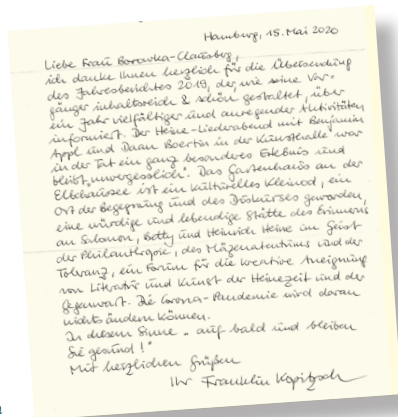 Hamburg, 15. Mai 2020
Liebe Frau Borowka-Clausberg,
ich danke Ihnen herzlich für die Übersendung
des Jahresberichtes 2019, der, wie seine Vor-
gänger inhaltsreich & schön gestaltet, über
ein Jahr vielfältiger und anregender Aktivitäten
informiert. Der Heine-Liederabend mit Benjamin
Appl und Daan Boertin in der Kunsthalle war
in der Tat ein ganz besonderes Erlebnis und
bleibt "unvergesslich". Das Gartenhaus an der
Elbchaussee ist ein kulturelles Kleinod, ein
Ort der Begegnung und des Diskurses geworden,
eine würdige und lebendige Stätte des Erinnerns
an Salomon, Betty und Heinrich Heine im Geist
der Philanthropie, des Mäzenatentums und der
Toleranz, ein Forum für die kreative Aneignung
von Literatur und Kunst der Heinezeit und der
Gegenwart. Die Corona-Pandemie wird daran
nichts ändern können.
In diesem Sinne "auf bald und bleiben
Sie gesund!"
Mit herzlichen Grüßen
Ihr Franklin Kopitzsch